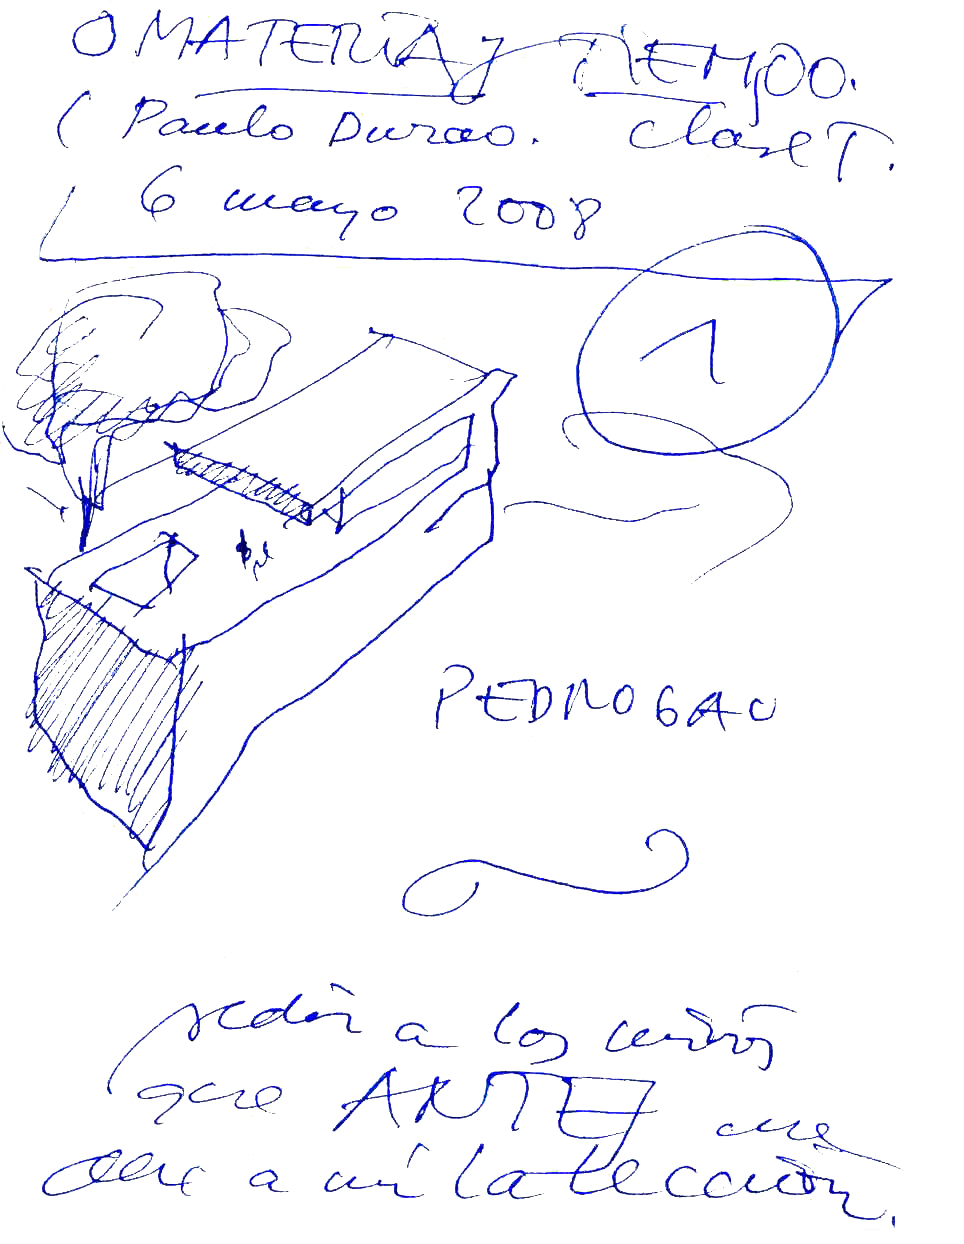 O MATERIA y TIEMPO.
( Paulo Durao. clase T.
6 mayo 2008
1
PEDROGAO
pedir a los niños
que ANTES me
den a mi la lección.